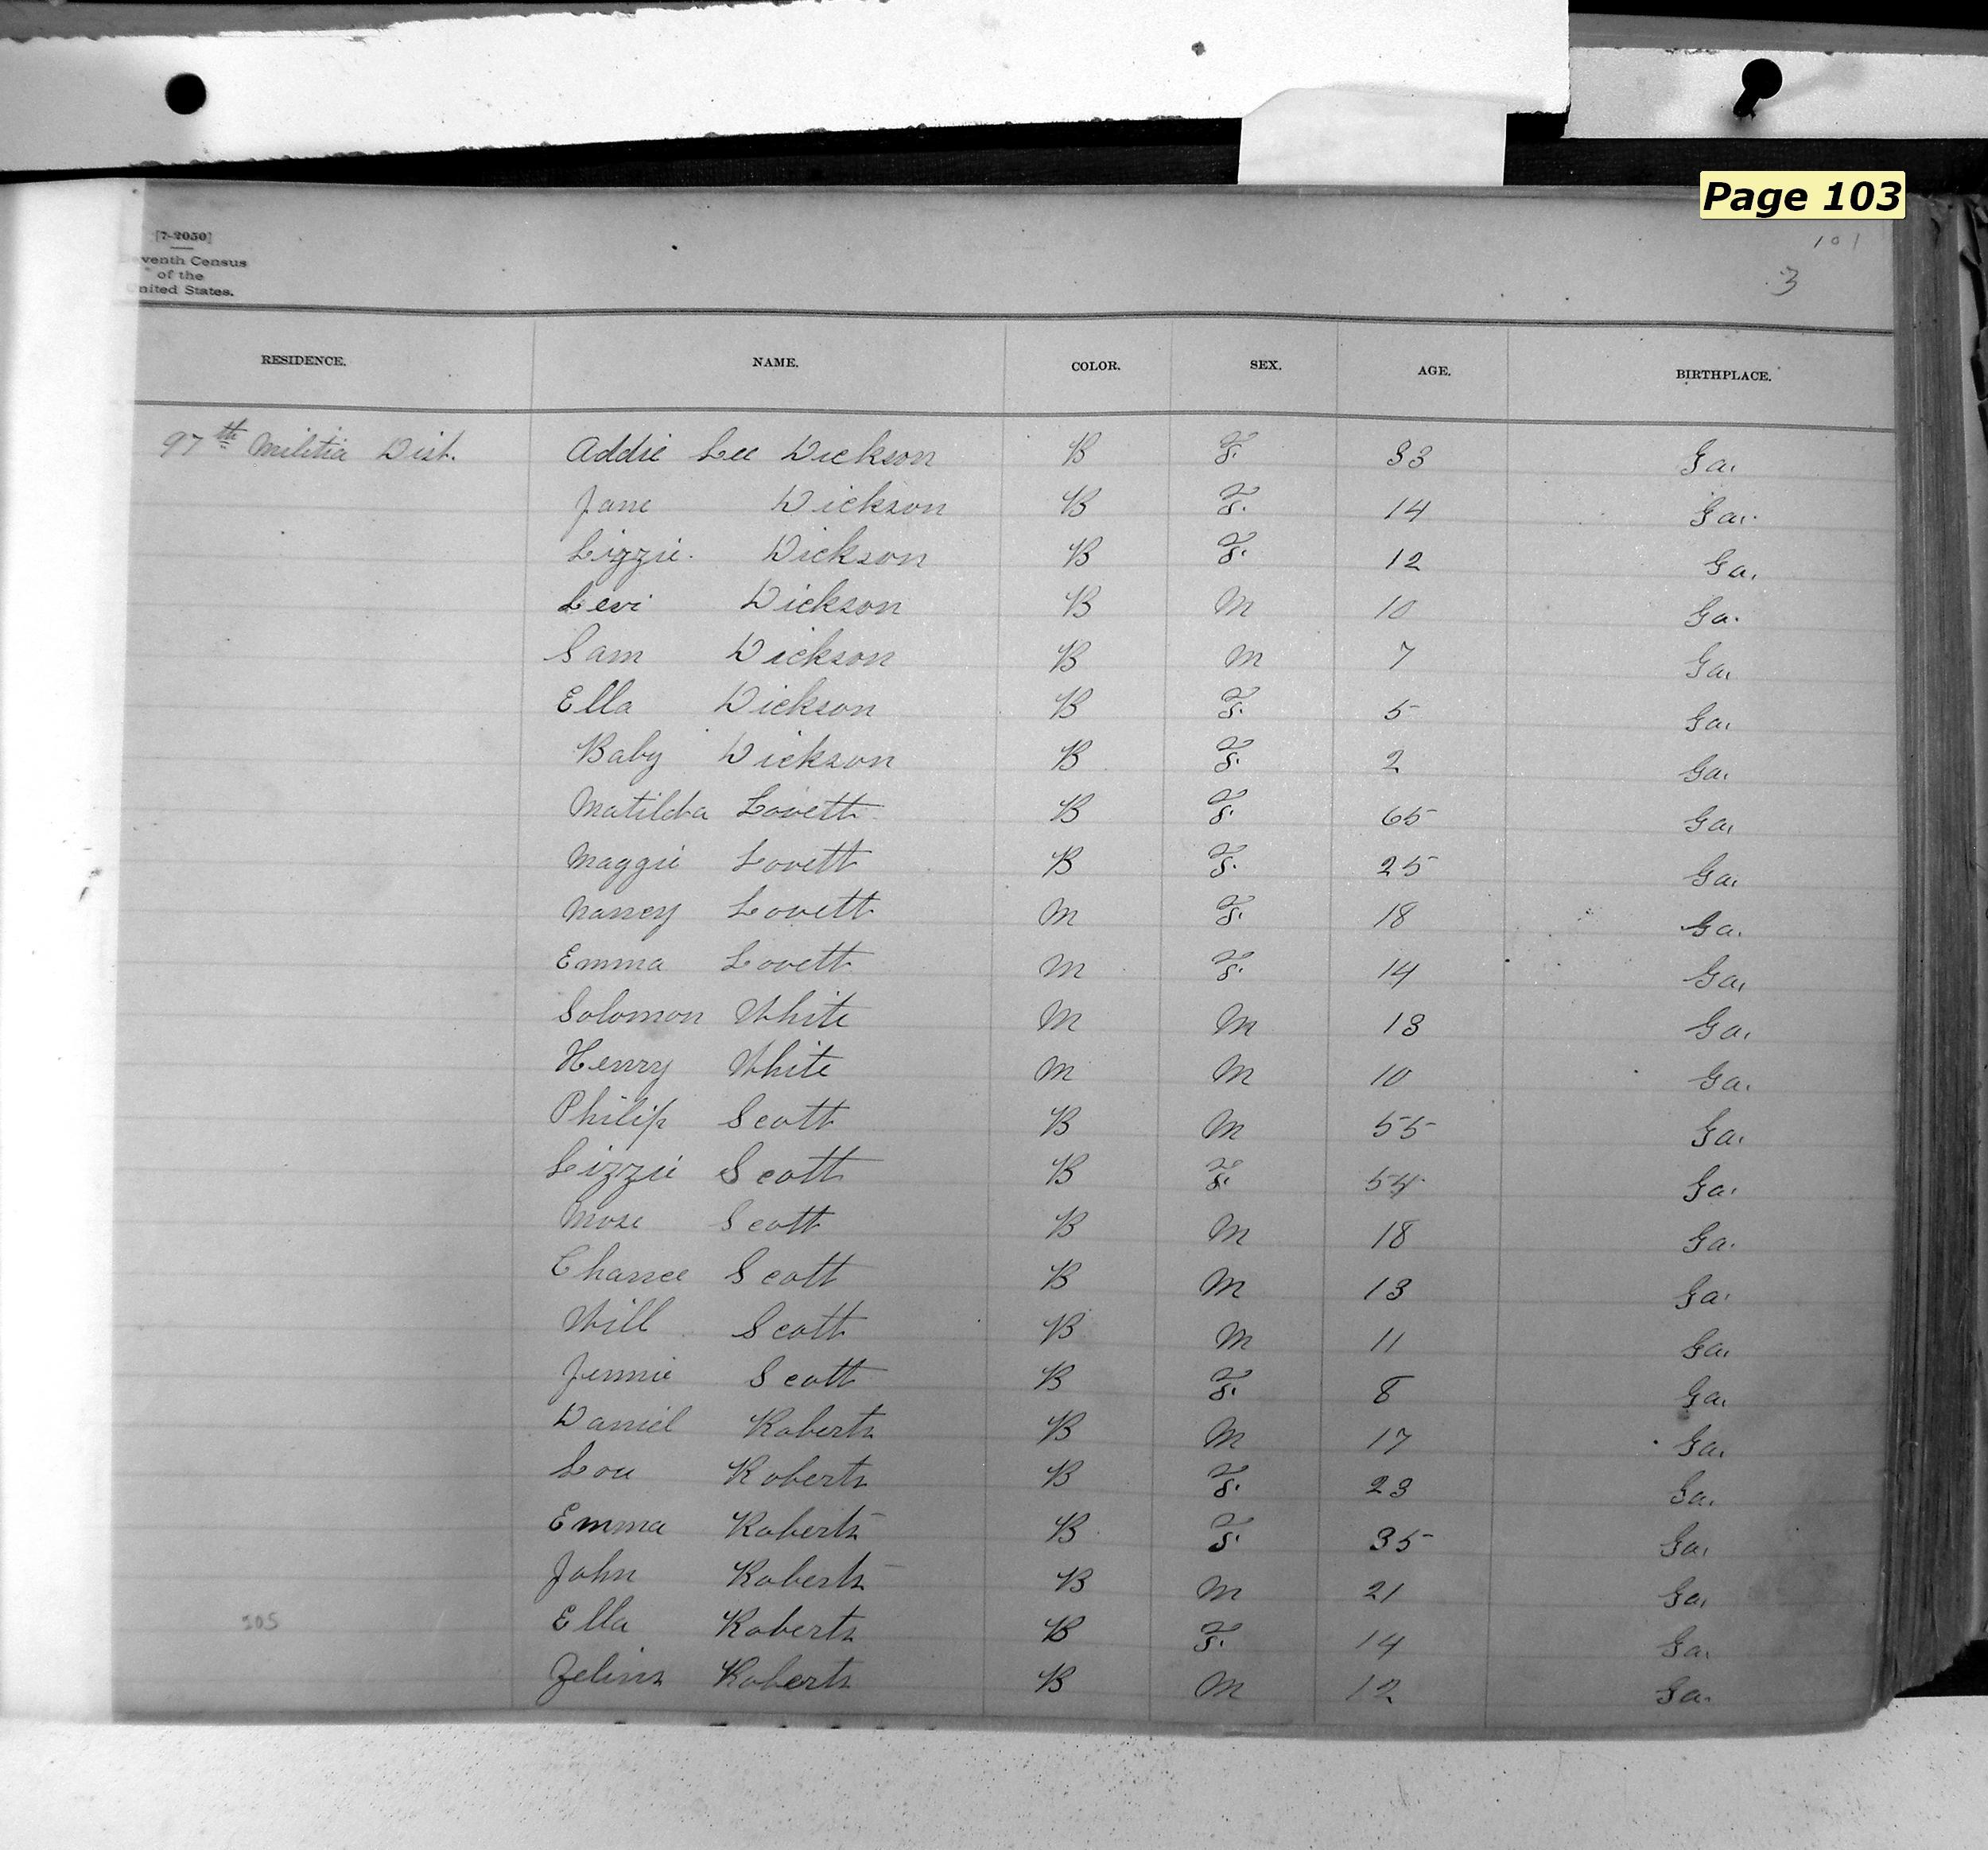 Page 103
[7-2050]
101
venth Census
of the
nited States.
3
RESIDENCE. NAME. COLOR. SEX. AGE. BIRTHPLACE.
97th Militia Dist. Addie Lee Dickson B F. 33 Ga.
Jane Dickson B F. 14 Ga.
Lizzie Dickson B F. 12 Ga.
Levi Dickson B M 10 Ga.
Sam Dickson B M 7 Ga.
Ella Dickson B F. 5 Ga.
Baby Dickson B F. 2 Ga.
Matilda Lovett B F. 65 Ga.
Maggie Lovett B F. 25 Ga.
Nancy Lovett M F. 18 Ga.
Emma Lovett M F. 14 Ga.
Solomon White M M 13 Ga.
Henry White M M 10 Ga.
Philip Scott B M 55 Ga.
Lizzie Scott B F. 54 Ga.
Mose Scott B M 18 Ga.
Chance Scott B M 13 Ga.
Will Scott B M 11 Ga.
Jennie Scott B F. 8 Ga.
Daniel Roberts B M 17 Ga.
Lou Roberts B F. 23 Ga.
Emma Roberts B F. 35 Ga.
John Roberts B M 21 Ga.
Ella Roberts B F. 14 Ga.
Roberts B M 12 Ga.